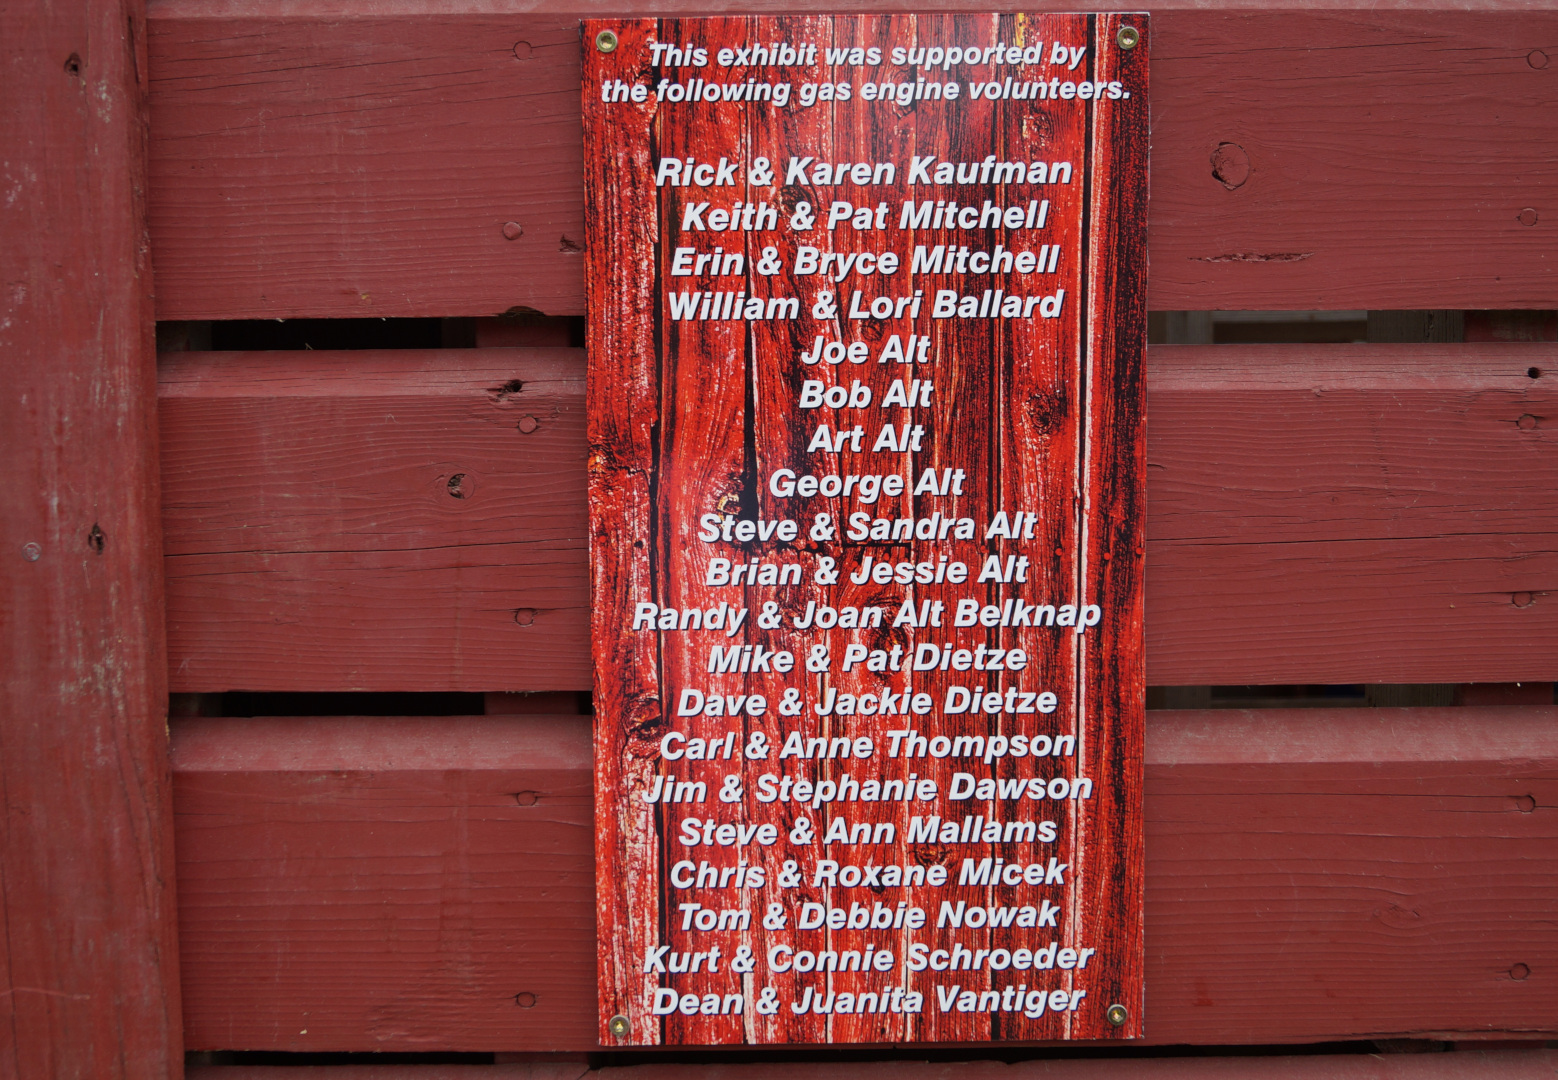 This exhibit was supported by
the following gas engine volunteers.
Rick & Karen Kaufman
Keith & Pat Mitchell
Erin & Bryce Mitchell
William & Lori Ballard
Joe Alt
Bob Alt
Art Alt
George Alt
Steve & Sandra Alt
Brian & Jessie Alt
Randy & Joan Alt Belknap
Mike & Pat Dietze
Dave & Jackie Dietze
Carl & Anne Thompson
Jim & Stephanie Dawson
Steve & Ann Mallams
Chris & Roxane Micek
Tom & Debbie Nowak
Kurt & Connie Schroeder
Dean & Juanita Vantiger